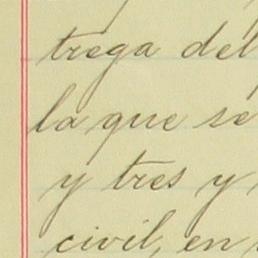 trega del
la que se
y tres y
civil, en